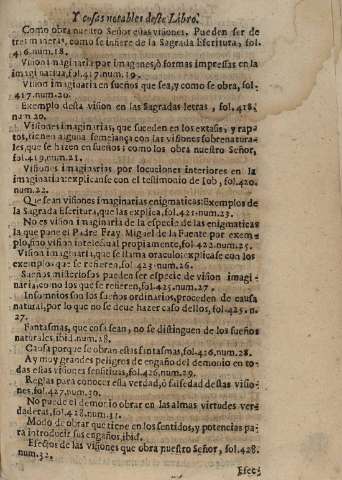 Y cosas notables deste Libro.
Como obra nuestro Señor estas visiones. Pueden ser de
tres maneras, como se infiere de la Sagrada Escritura, fol.
416. num. 18.
Vision imaginaria por imagenes, ò formas impressas en la
imaginatiua, fol. 417. num. 19.
Vision imaginaria en sueños que sea, y como se obra, fol.
417. num. 20.
Exemplo desta vision en las Sagradas letras, fol. 418.
num. 20.
Visiones imaginarias, que suceden en los extasis, y rap-
tos, tienen alguna semejança con las visiones sobrenatura-
les, que se hizen en sueños; como los obra nuestro Señor,
fol. 419. num. 21.
Visiones imaginarias por locuciones interiores en la
imaginatiua: explicanse con el testimonio de Iob, fol. 420.
num. 22.
Que sean visiones imaginarias enigmaticas: Exemplos de
la Sagrada Escritura, que las explica, fol. 421. num. 23.
No es vision imaginaria de la especie de las enigmaticas
la que pone el Padre Fray Miguel de la Fuente por exem-
plo, sino vision intelectual propiamente, fol. 422. num. 25.
Vision imaginaria, que se llama oraculo: explicase con los
exemplos que se refieren, fol. 423. num. 26.
Sueños misteriosos pueden ser especie de vision imagi-
naria, como los que se refieren, fol. 425. num. 27.
Insomnios son los sueños ordinarios, proceden de causa
natural, por lo que no se deue hazer caso dellos, fol. 425. n.
27.
Fantasmas, que cosa sean, no se distinguen de los sueños
naturales. ibid. num. 28.
Causa porque se obran estas fantasmas, fol. 426. num. 28.
Ay muy grandes peligros de engaño del demonio en to-
das estas visiones sensitiuas, fol. 426. num. 29.
Reglas para conocer esta verdad, ò falsedad destas visio-
nes, fol. 427. num. 30.
No puede el demonio obrar en las almas virtudes ver-
daderas, fol. 428. num. 31.
Modo de obrar que tiene en los sentidos, y potencias pa-
ra introducir sus engaños, ibid.
Efectos de las visiones que obra nuestro Señor, fol. 428.
num. 32.
Efec-